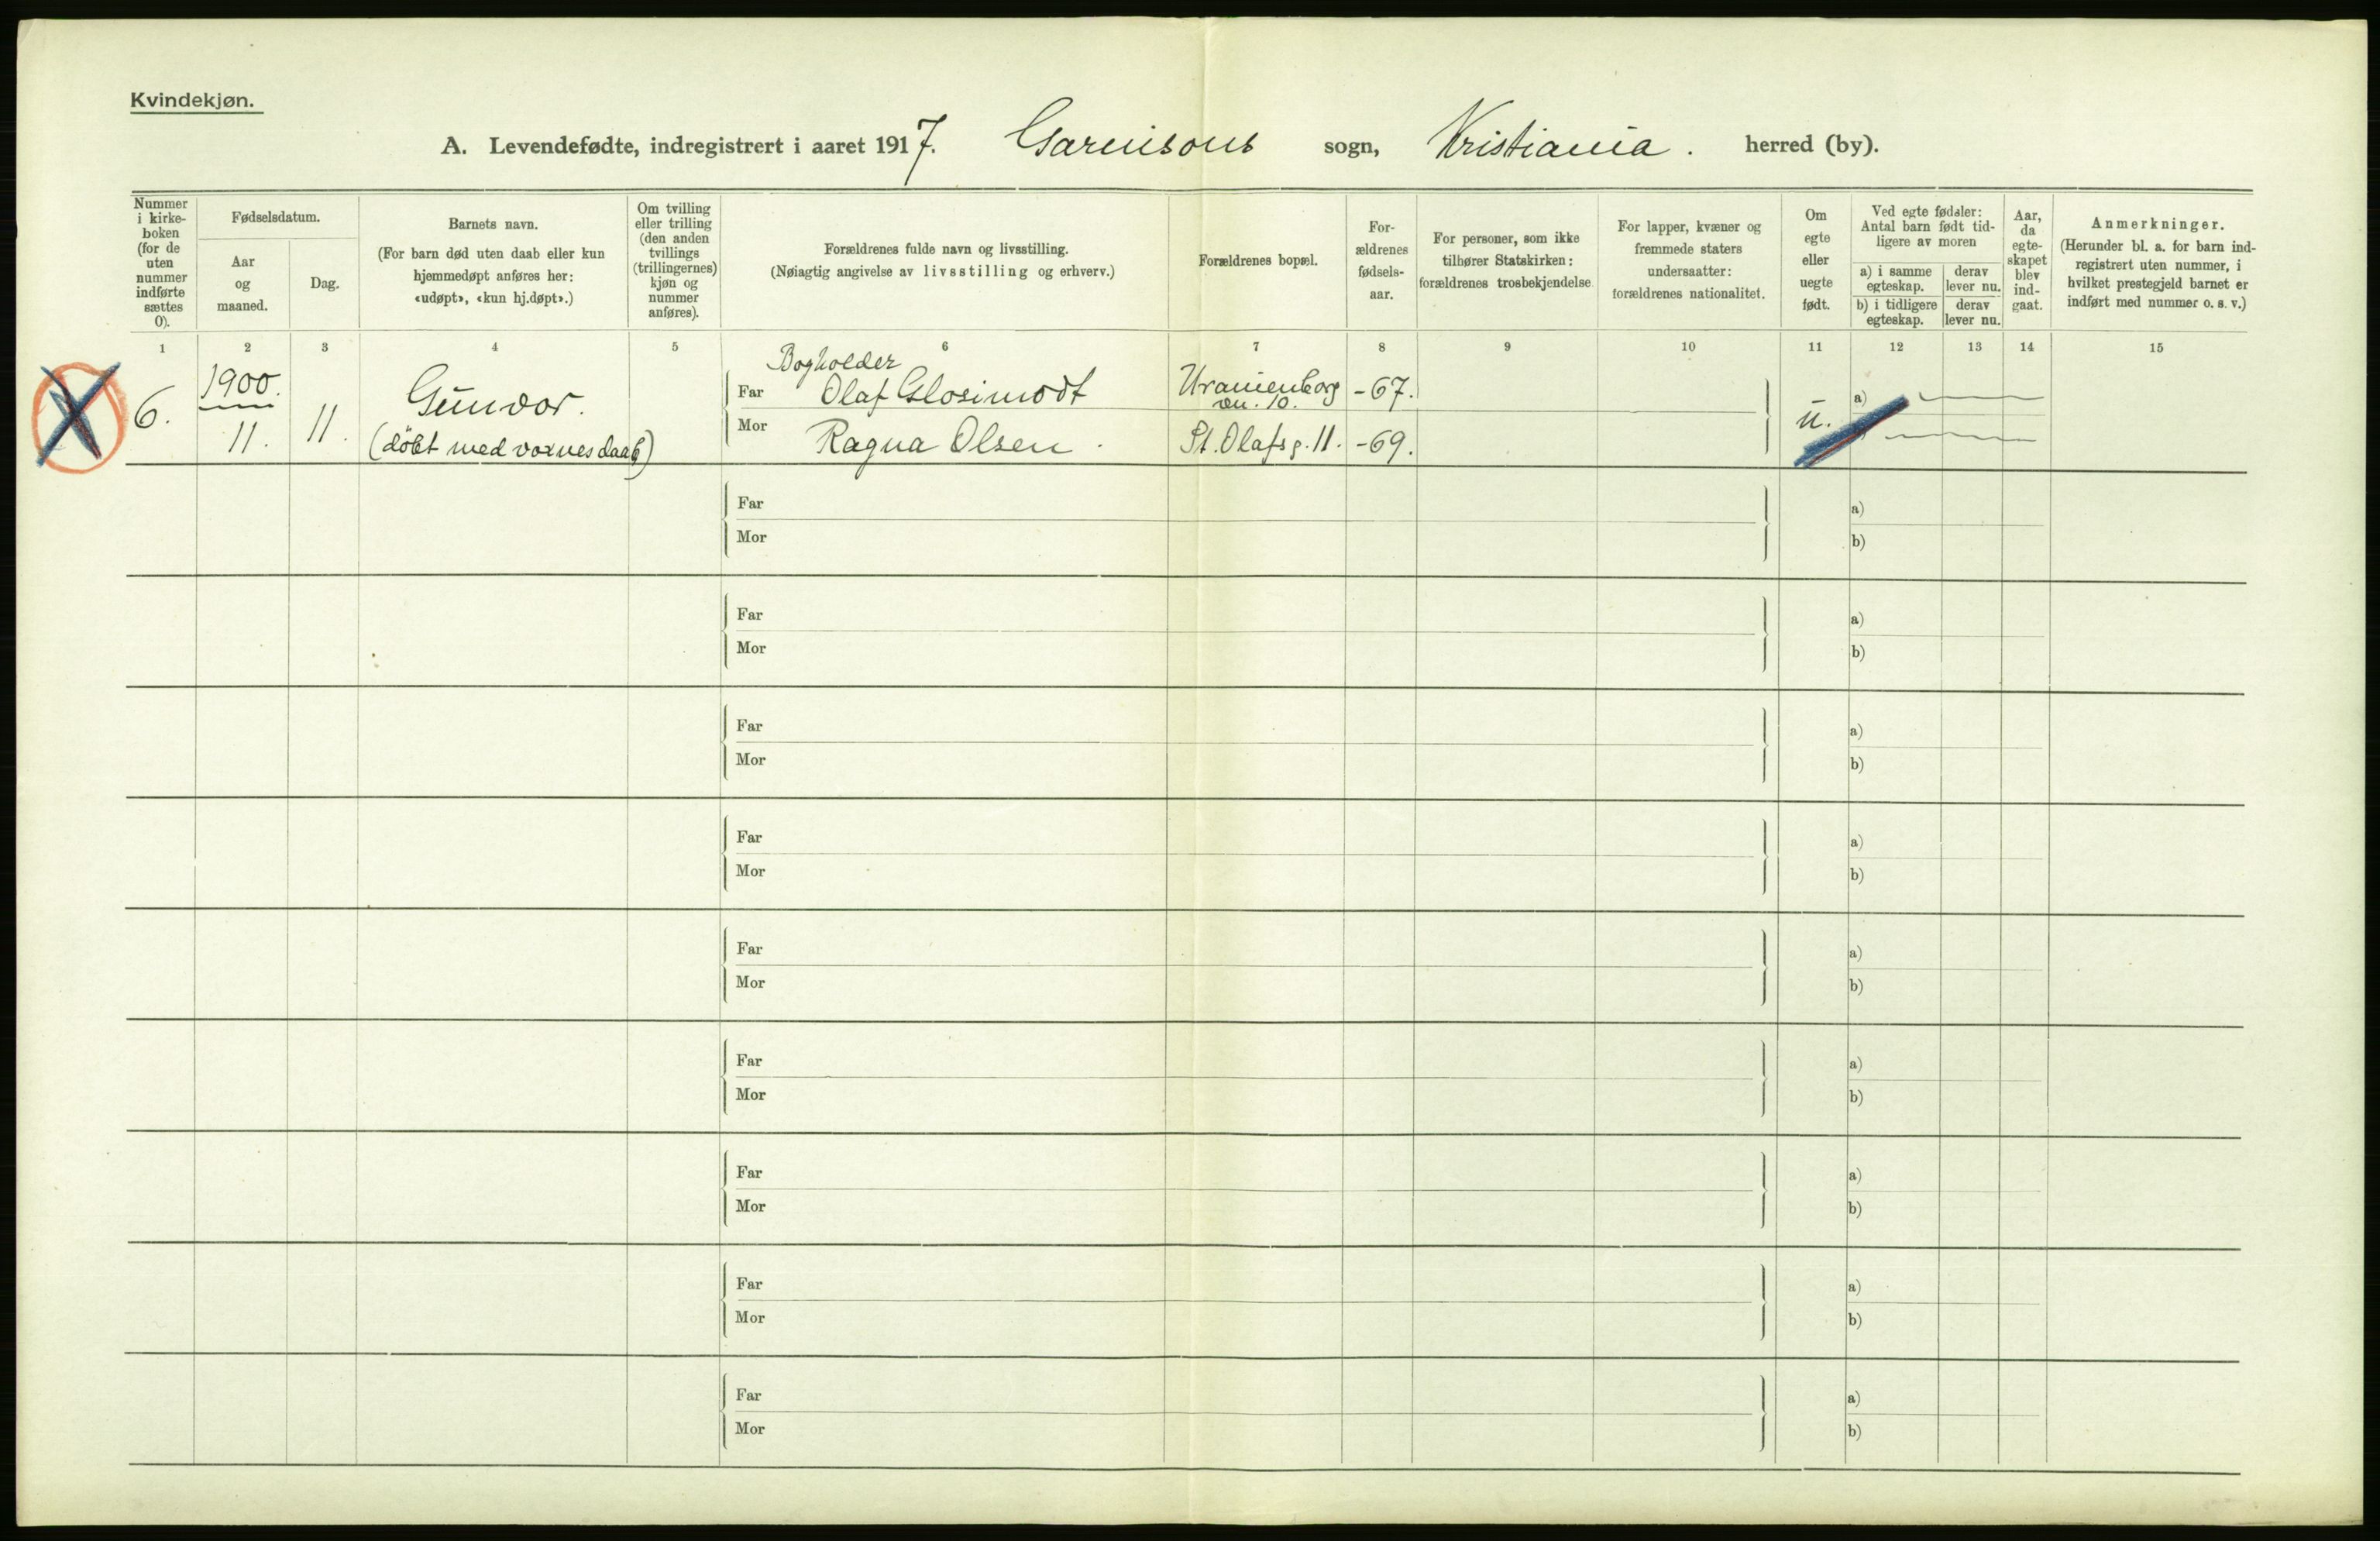 Kvindekjøn.
A. Levendefødte, indregistrert i aaret 1917. Garnisons sogn, Kristiania. herred (by).
Nummer i kirke-boken (for de uten nummer indførte sættes 0).
Fødselsdatum.
Aar og maaned.
Dag.
Barnets navn.
(For barn død uten daab eller kun hjemmedøpt anføres her: «udøpt», «kun hj.døpt».)
Om tvilling eller trilling (den anden tvillings (trillingernes) kjøn og nummer anføres).
Forældrenes fulde navn og livsstilling.
(Nøiagtig angivelse av livsstilling og erhverv.)
Forældrenes bopæl.
For-ældrenes fødsels-aar.
For personer, som ikke tilhører Statskirken: forældrenes trosbekjendelse.
For lapper, kvæner og fremmede staters undersaatter: forældrenes nationalitet.
Om egte eller uegte født.
Ved egte fødsler: Antal barn født tid-ligere av moren
a) i samme egteskap.
derav lever nu.
b) i tidligere egteskap.
derav lever nu.
Aar, da egte-skapet blev ind-gaat.
Anmerkninger.
(Herunder bl. a. for barn ind-registrert uten nummer, i hvilket prestegjeld barnet er indført med nummer o. s. v.)
1 2 3 4 5 6 7 8 9 10 11 12 13 14 15
6. 1900. 11. 11. Gunvor.
(döbt med voxnes daab)
Bogholder
Far Olaf Glosimodt Uranienborg vn. 10. -67.
Mor Ragna Olsen. St. Olafs g. 11. -69.
u. a)
Far a)
Mor b)
Far a)
Mor b)
Far a)
Mor b)
Far a)
Mor b)
Far a)
Mor b)
Far a)
Mor b)
Far a)
Mor b)
Far a)
Mor b)
Far a)
Mor b)